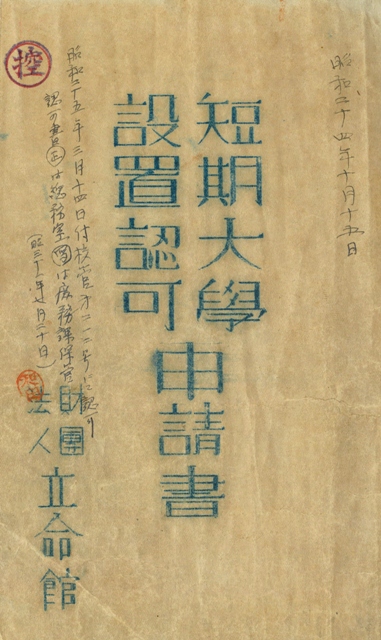 昭和二十四年十月十五日
短期大學
設置認可
申請書
控
昭和二十五年三月十四日付校管才二一二号ニ認可
認可書正は総務室副は庶務課保管
(昭三十一年七月二十日)
財團
法人
立命館